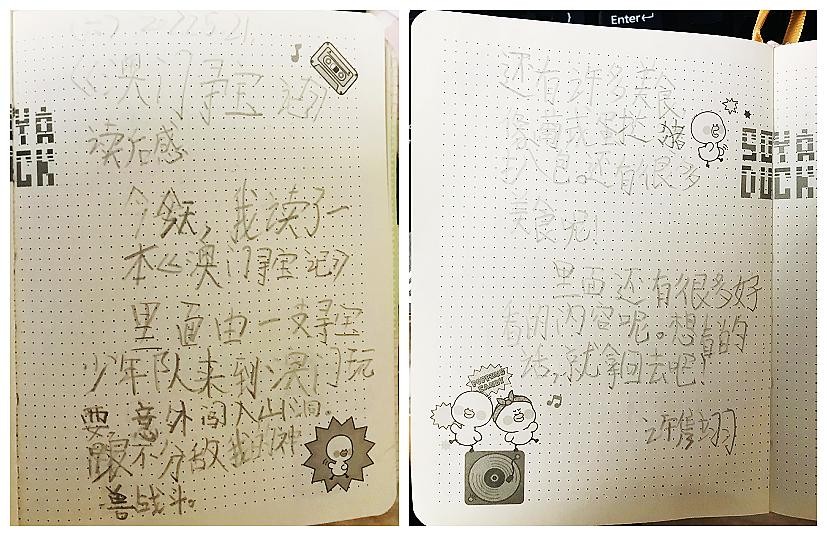 《澳门寻宝记》
读后感
今天,我读了一
本《澳门寻宝记》
里面由一支寻宝
少年队来到澳门玩
要意外闯入山洞。
跟不分敌我的神
兽战斗。
Enter
还有许多美食
像葡式蛋挞,猪
扒包。还有很多
美食呢!
里面还有很多好
看的内容呢。想看的
话,就拿回去吧!
许隽翊
SOYA
DUCK